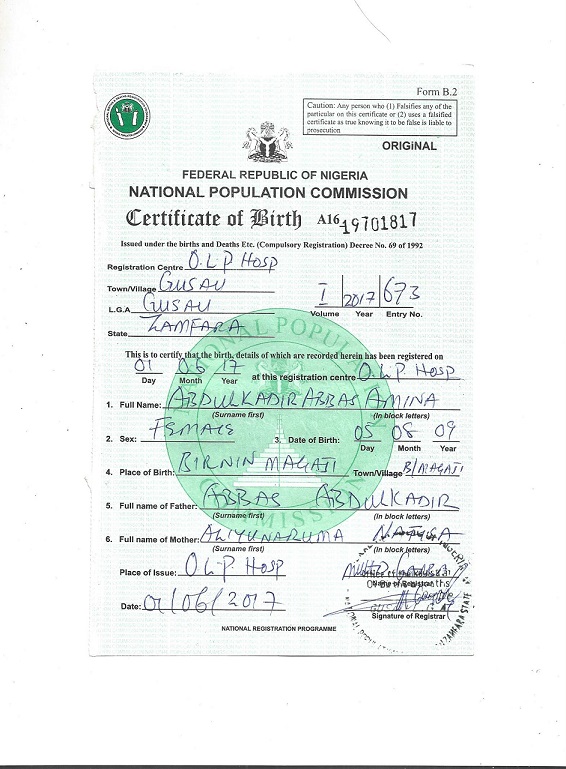 Form B.2
Caution: Any person who (1) Falsifies any of the
particular on this certificate or (2) uses a falsified
certificate as true knowing it to be false is liable to
prosecution
ORIGiNAL
FEDERAL REPUBLIC OF NIGERIA
NATIONAL POPULATION COMMISSION
Certificate of Birth A16 19701817
Issued under the births and Deaths Etc. (Compulsory Registration) Decree No. 69 of 1992
Registration Centre O.L.P HOSP
Town/Village GUSAU
L.G.A GUSAU
State ZAMFARA
I 2017 673
Volume Year Entry No.
This is to certify that the birth, details of which are recorded herein has been registered on
01 06 17 at this registration centre O.L.P HOSP
Day Month Year
1. Full Name: ABDULKADIR ABBAS AMINA
(Surname first) (In block letters)
2. Sex: FEMALE 3. Date of Birth: 05 08 09
Day Month Year
4. Place of Birth: BIRNIN MAGAJI Town/Village B/MAGAJI
5. Full name of Father: ABBAS ABDULKADIR
(Surname first) (In block letters)
6. Full name of Mother: ALIYU NARUMA
(Surname first) (In block letters)
Place of Issue: O.L.P HOSP
Name of Registrar
Date: 01/06/2017
Signature of Registrar
NATIONAL REGISTRATION PROGRAMME
NATIONAL POPULATION COMMISSION